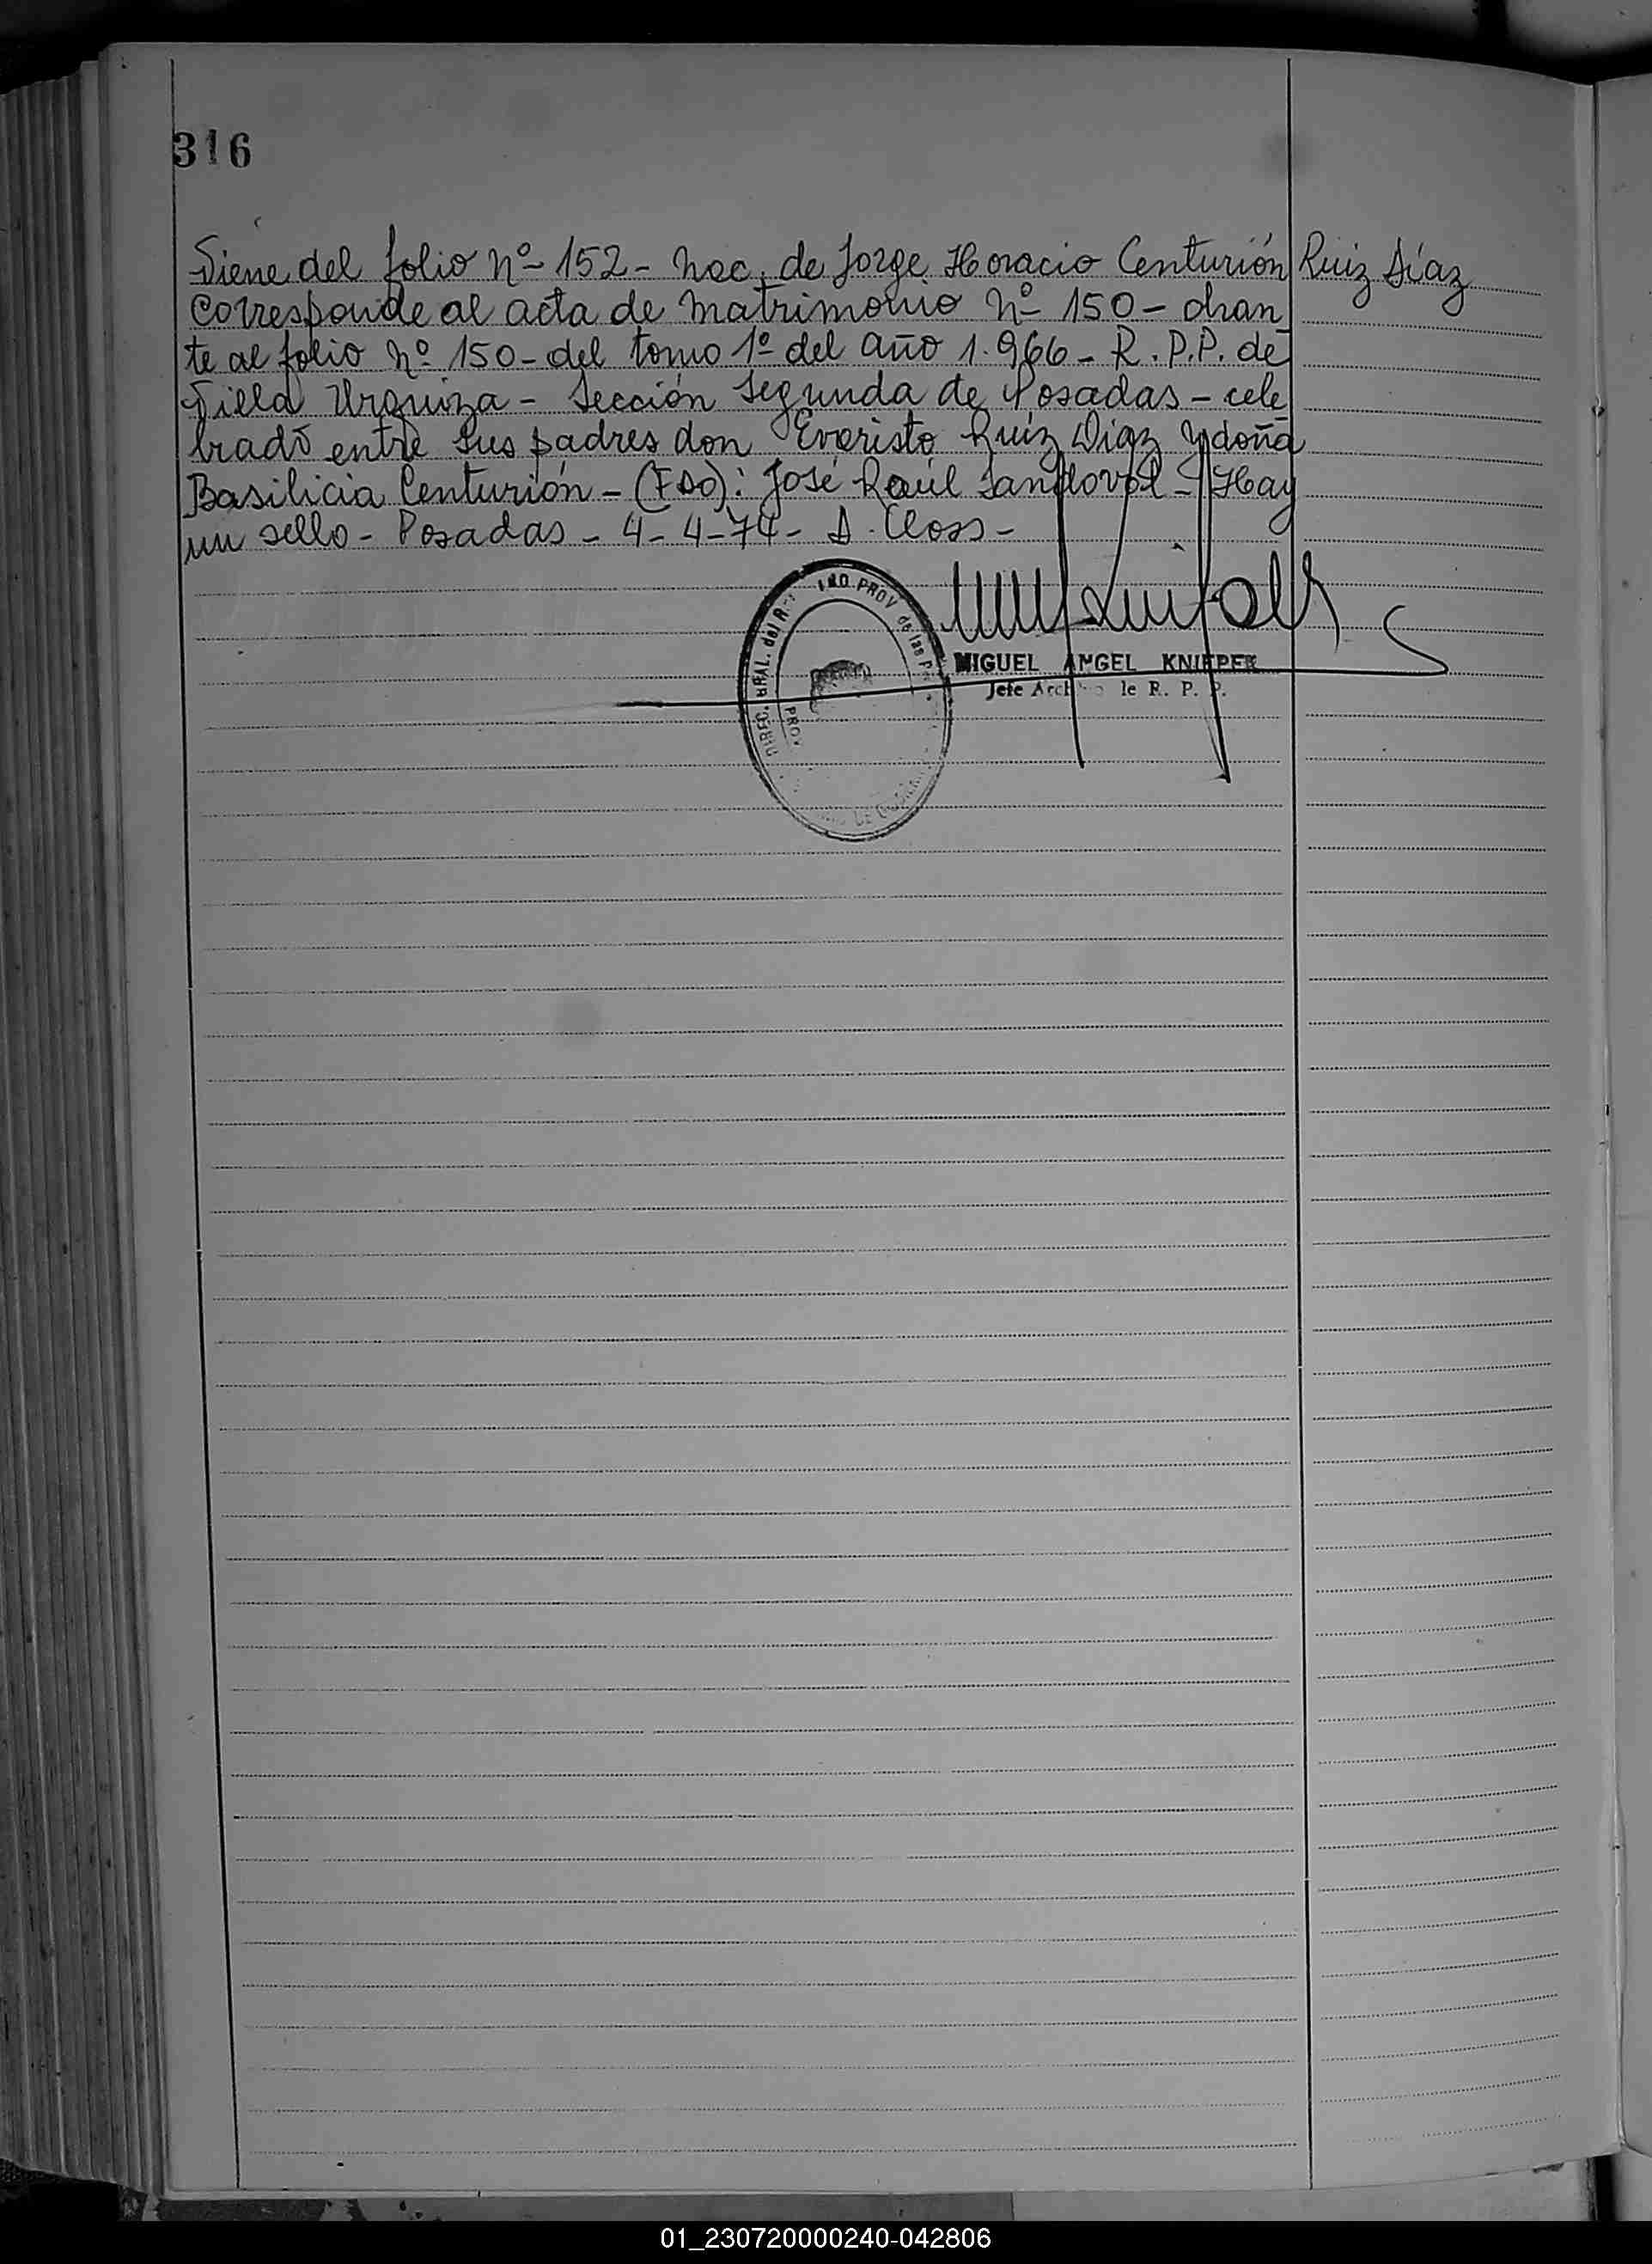 316
Viene del folio nº 152 - Nac. de Jorge Horacio Centurión Ruiz Díaz
Corresponde al acta de Matrimonio nº 150 - obran
te al folio nº 150 - del tomo 1º del año 1.966 - R.P.P. de
Villa Urquiza - Sección Segunda de Posadas - cele
brado entre sus padres don Evaristo Ruiz Diaz y doña
Basilicia Centurión - (Fdo): José Raúl Sandoval - Hay
un sello - Posadas - 4-4-74 - D. Closs -
DIREC. GRAL. del PROV de las P
PROV
MIGUEL ANGEL KNIEPER
Jefe Arch le R. P. P.
01_230720000240-042806